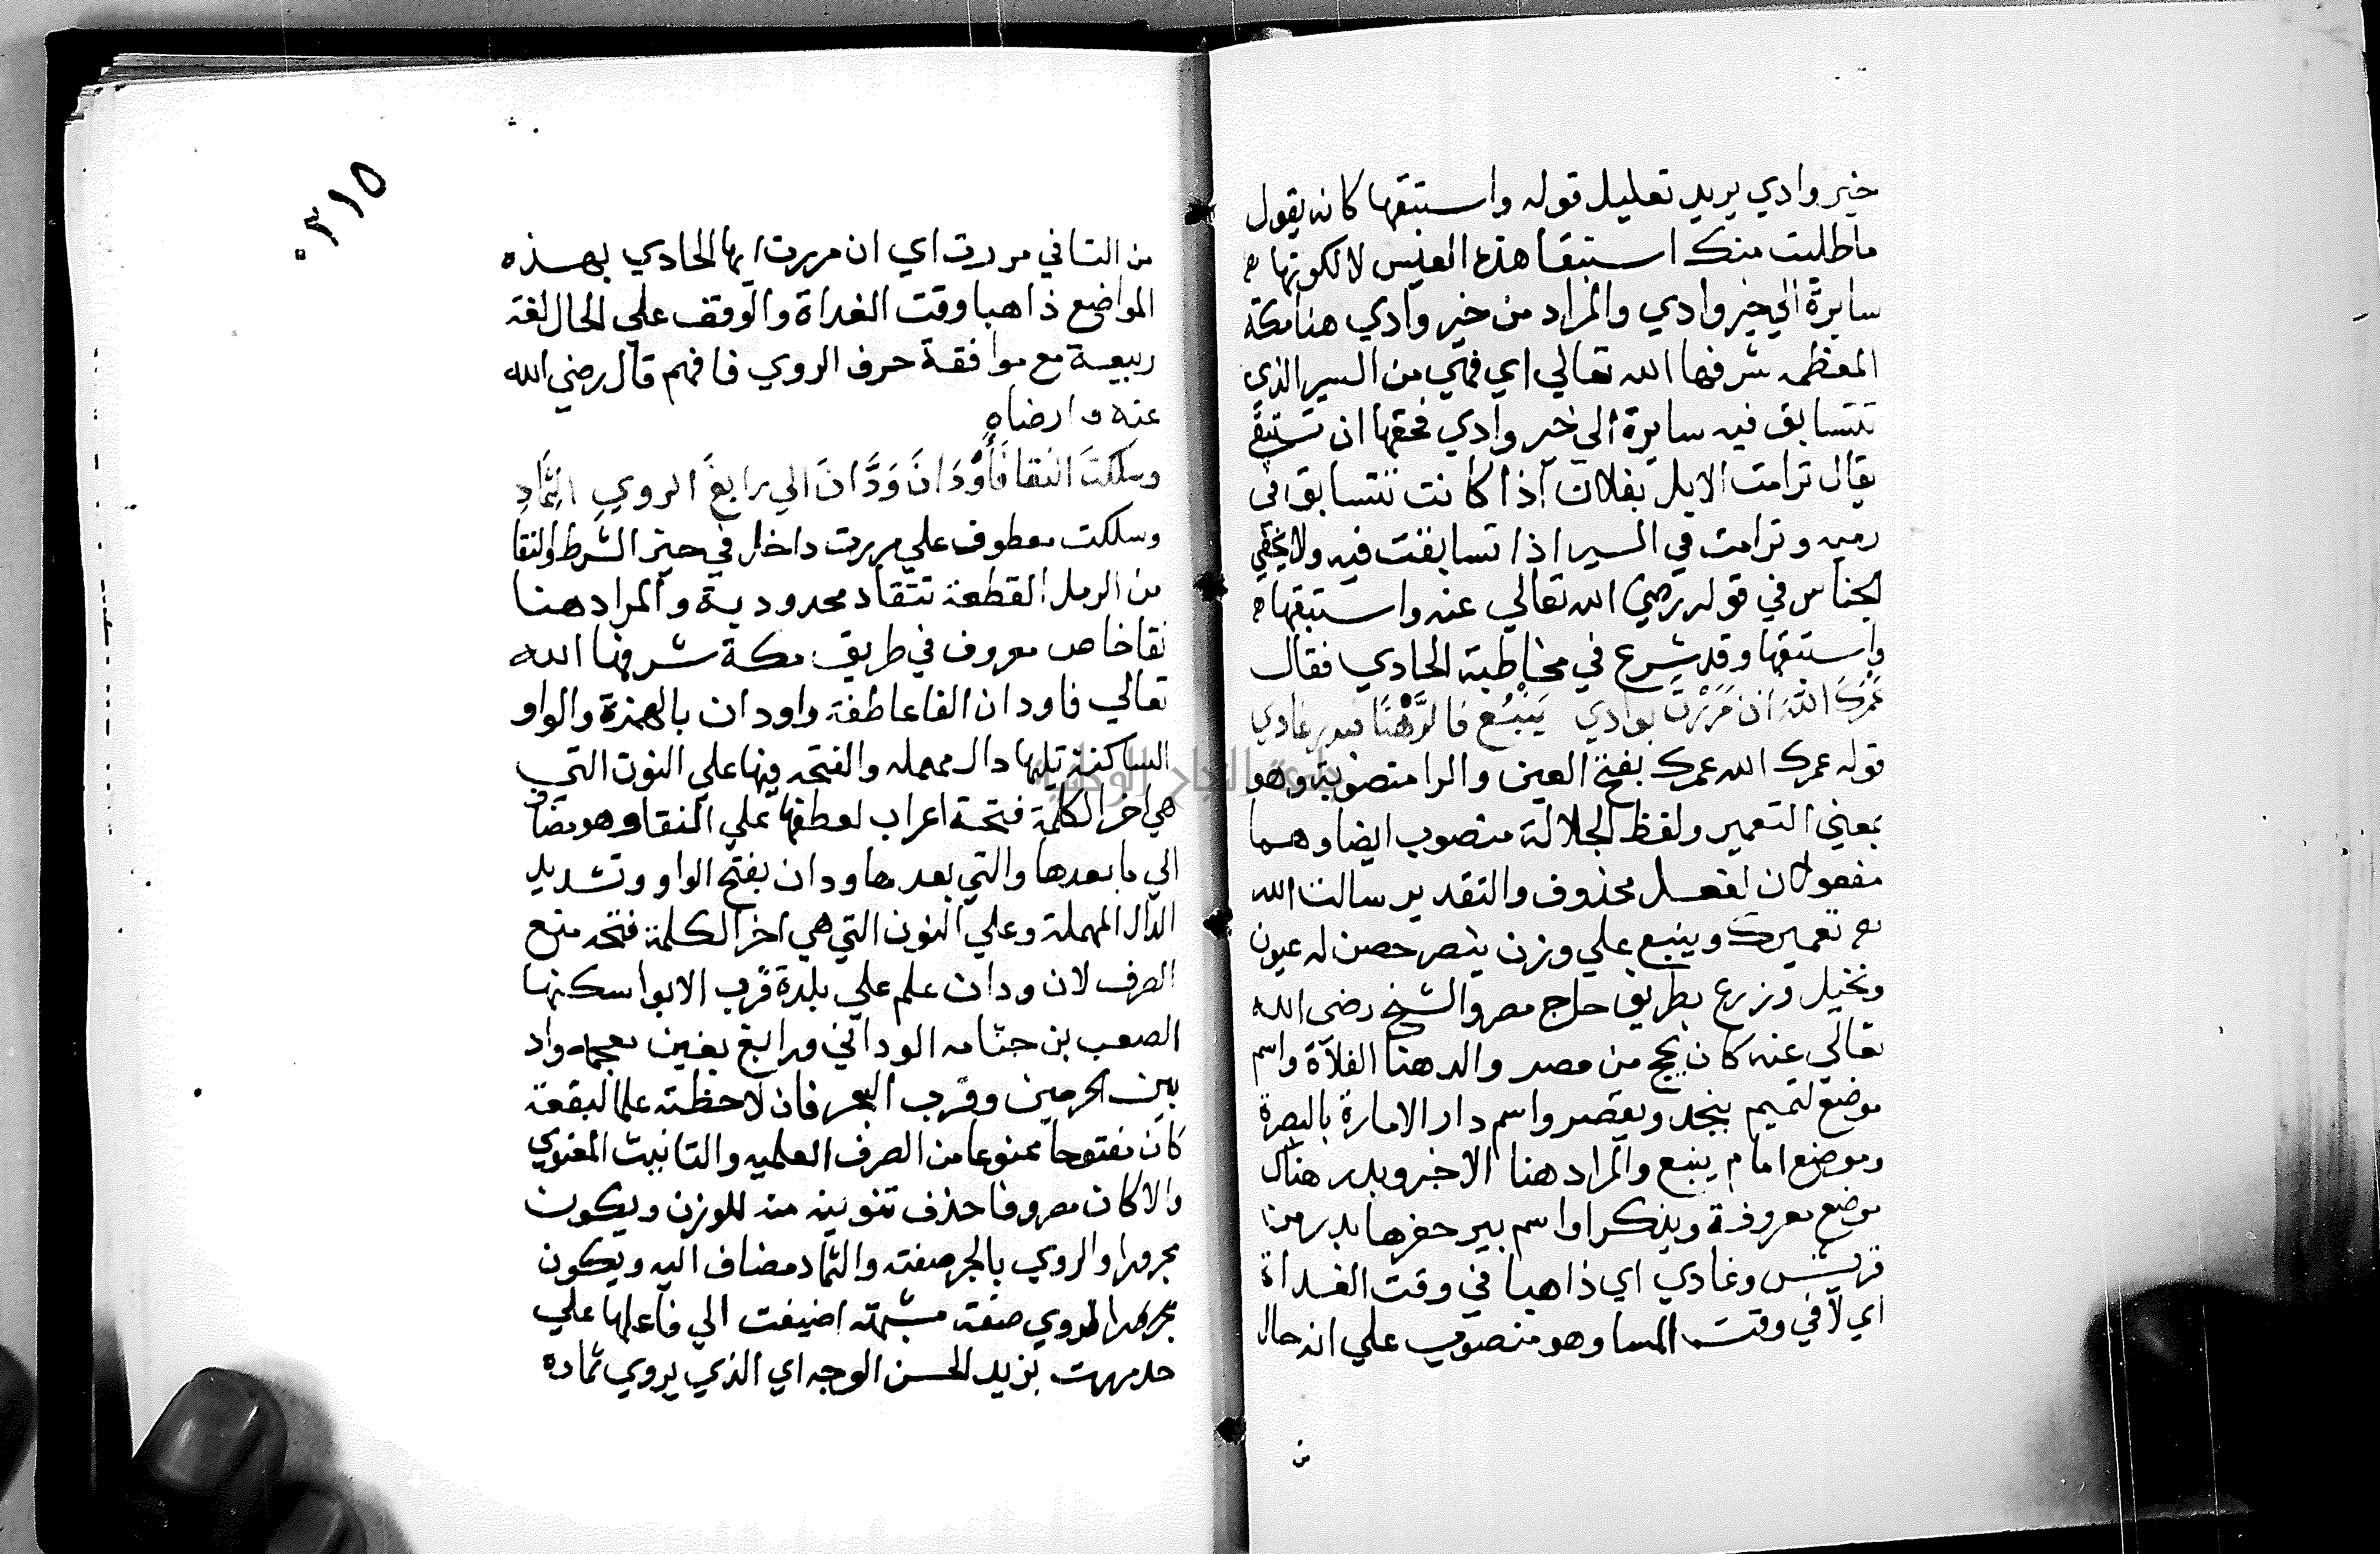 خير وادي يريد تعليل قوله واستبقها كانه يقول
ما طلبت منك استبقا هذه العيس لا لكونها
سايرة الي خير وادي والمراد من خير وادي هنا مكة
المعظمه شرفها الله تعالي اي فهي من السير الذي
تتسابق فيه سايرة الي خير وادي فحقها ان تستبقي
يقال ترامت الابل بفلان اذا كانت تتسابق في
رميه وترامت في السير اذا تسابقت فيه ولا يخفي
الجناس في قوله رضي الله تعالي عنه واستبقها
واستبقها وقد شرع في مخاطبة الحادي فقال
عَمْرَكَ اللهَ ان مَرَرْتَ بوادي يَنْبُع فالدَّهْنَا فبدر غادي
قوله عمرك الله عمرك بفتح العين والرا منصوبة وهو
بمعني التعمير ولفظ الجلالة منصوب ايضا وهما
مفعولان لفعل محذوف والتقدير سالت الله
تعميرك وينبع علي وزن ينصر حصن له عيون
ونخيل وزرع بطريق حاج مصر والشيخ رضي الله
تعالي عنه كان يحج من مصر والدهنا الفلاة واسم
موضع لتميم بنجد ويقصر واسم دار الامارة بالبصرة
وموضع امام ينبع والمراد هنا الاخير وبدر هناك
موضع معروفة ويذكر او اسم بير حفرها بدر من
قريش وغادي اي ذاهبا في وقت الغداة
اي لا في وقت المسا وهو منصوب علي انه حال
من
٣١٥
من التا في مررت اي ان مررت ايها الحادي بهذه
المواضع ذاهبا وقت الغداة والوقف علي الحال لغة
ربيعة مع موافقة حرف الروي فافهم قال رضي الله
عنه وارضاه
وسلكتَ النقا فَأَوْدَانَ وَدَّانَ الي رابغَ الروي الثِّمَادِ
وسلكت معطوف علي مررت داخل في حيز الشرط والنقا
من الرمل القطعة تنقاد محدودبة والمراد هنا
نقا خاص معروف في طريق مكة شرفها الله
تعالي فاودان الفا عاطفة واودان بالهمزة والواو
الساكنة تليها دال مهمله والفتحه فيها علي النون التي
هي اخر الكلمة فتحة اعراب لعطفها علي النقا وهو مضاف
الي ما بعدها والتي بعدها ودان بفتح الواو وتشديد
الدال المهملة وعلي النون التي هي اخر الكلمة فتحه منع
الصرف لان ودان علم علي بلدة قرب الابوا سكنها
الصعب بن جثامه الوداني ورابغ بغين معجمه واد
بين الحرمين وقرب البحر فان لاحظته علما لبقعة
كان مفتوحا ممنوعا من الصرف العلميه والتانيث المعنوي
والا كان مصروفا حذف تنوينه منه للوزن ويكون
مجرورا والروي بالجر صفته والثماد مضاف اليه ويكون
مجرورا الروي صفة مشبهة اضيفت الي فاعلها علي
حد مررت بزيد الحسن الوجه اي الذي يروي ثماده